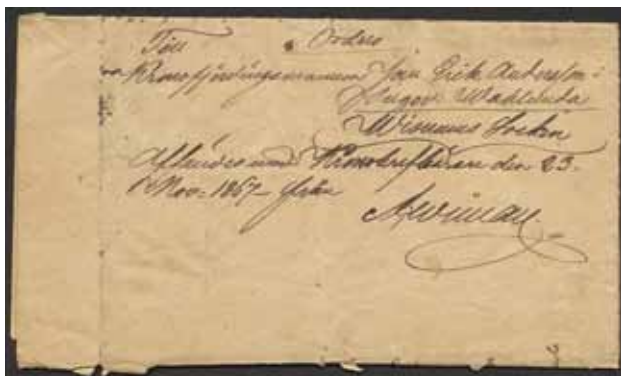 Till Orders
Kronofjerdingsmannen Jan Erik Andersson i
Wahlinda
Wisnums Socken
Afsändes med Kronobrefbäraren den 23.
Nov: 1867 från